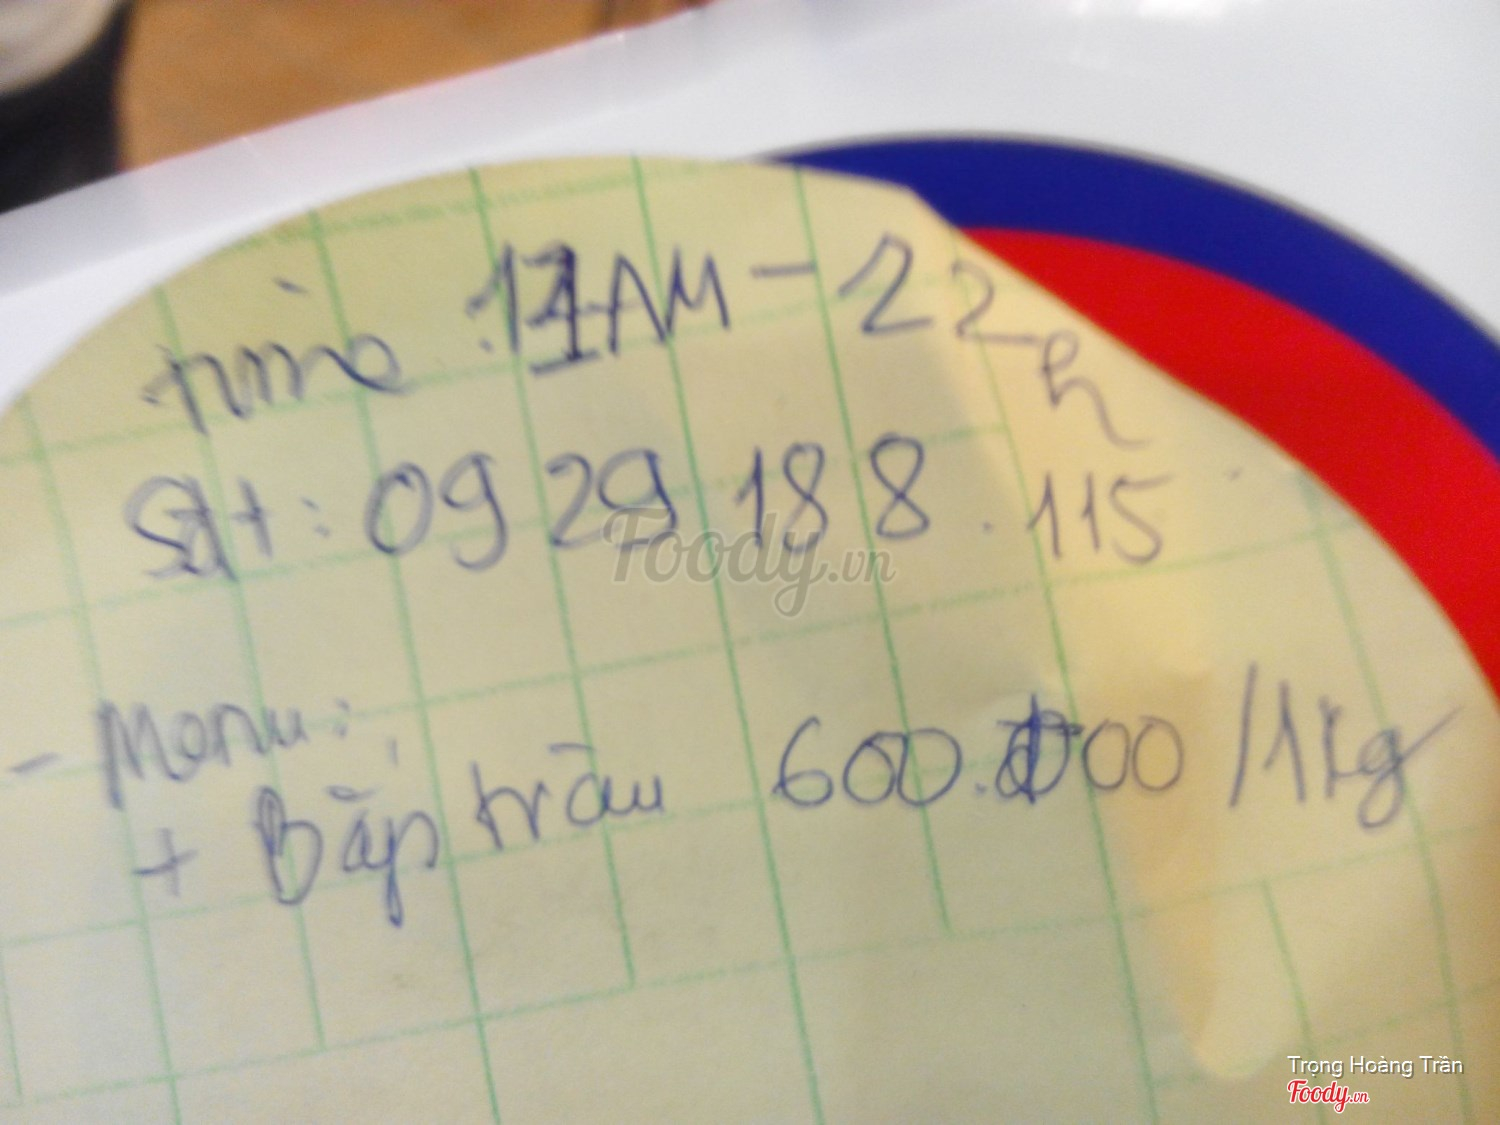 time : 11AM - 22h
Sđt : 0929 188 . 115
- Menu :
+ Bắp trâu 600.000 /1kg
Foody.vn
Trọng Hoàng Trần
Foody.vn